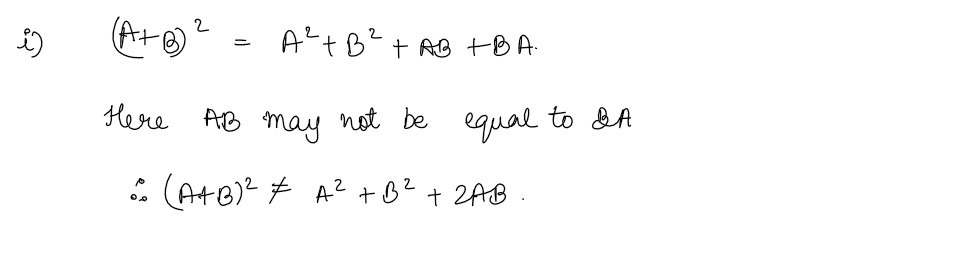 i) (A+B)² = A² + B² + AB + BA.
Here AB may not be equal to BA
∴ (A+B)² ≠ A² + B² + 2AB .